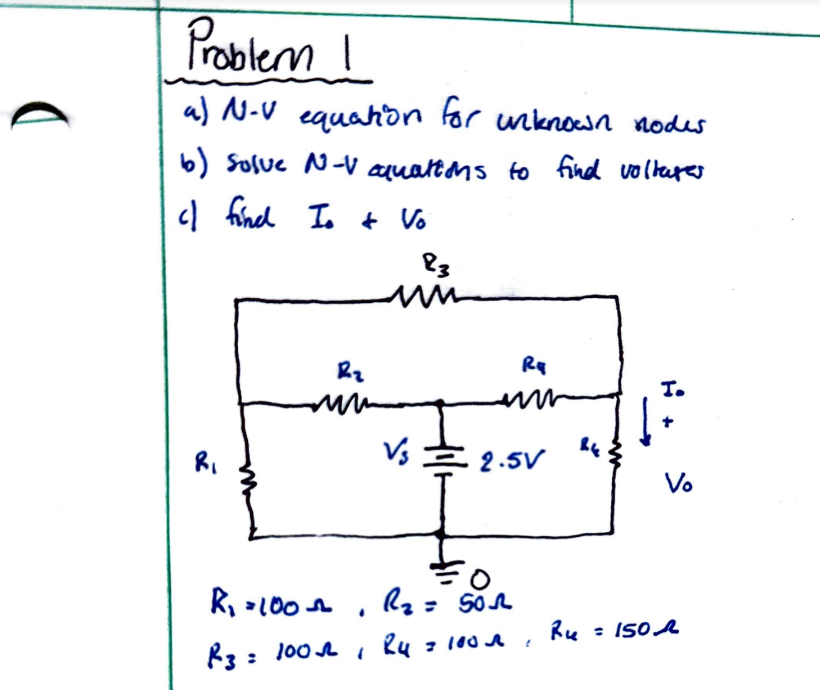 Problem 1
a) N-V equation for unknown nodes
b) Solve N-V equations to find voltages
c) find I₀ + V₀
R₃
R₂ R₄
I₀
+
R₁ Vs 2.5V
V₀
0
R₁ = 100 Ω , R₂ = 50 Ω
R₃ = 100 Ω , R₄ = 100 Ω , R₄ = 150 Ω